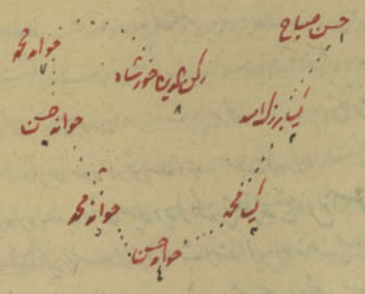 حسن صباح
۱
کیا بزرک امید
۲
کیا محمد
۳
خواند حسن
۴
خواند محمد
۵
خواند حسن
خواند محمد
۷
رکن الدین خورشاه
۸